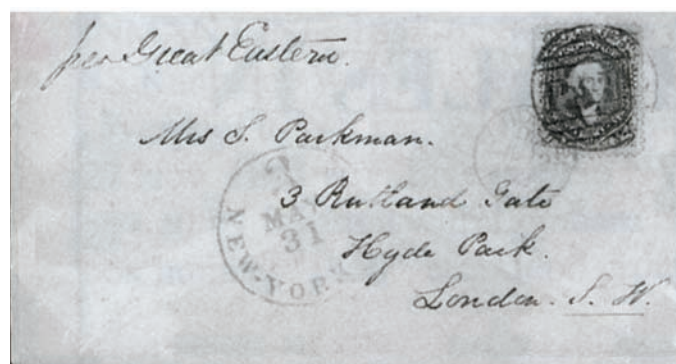 per Great Eastern.
Mrs S. Parkman.
3 Rutland Gate
Hyde Park.
London. S. W.
MA
31
NEW-YORK